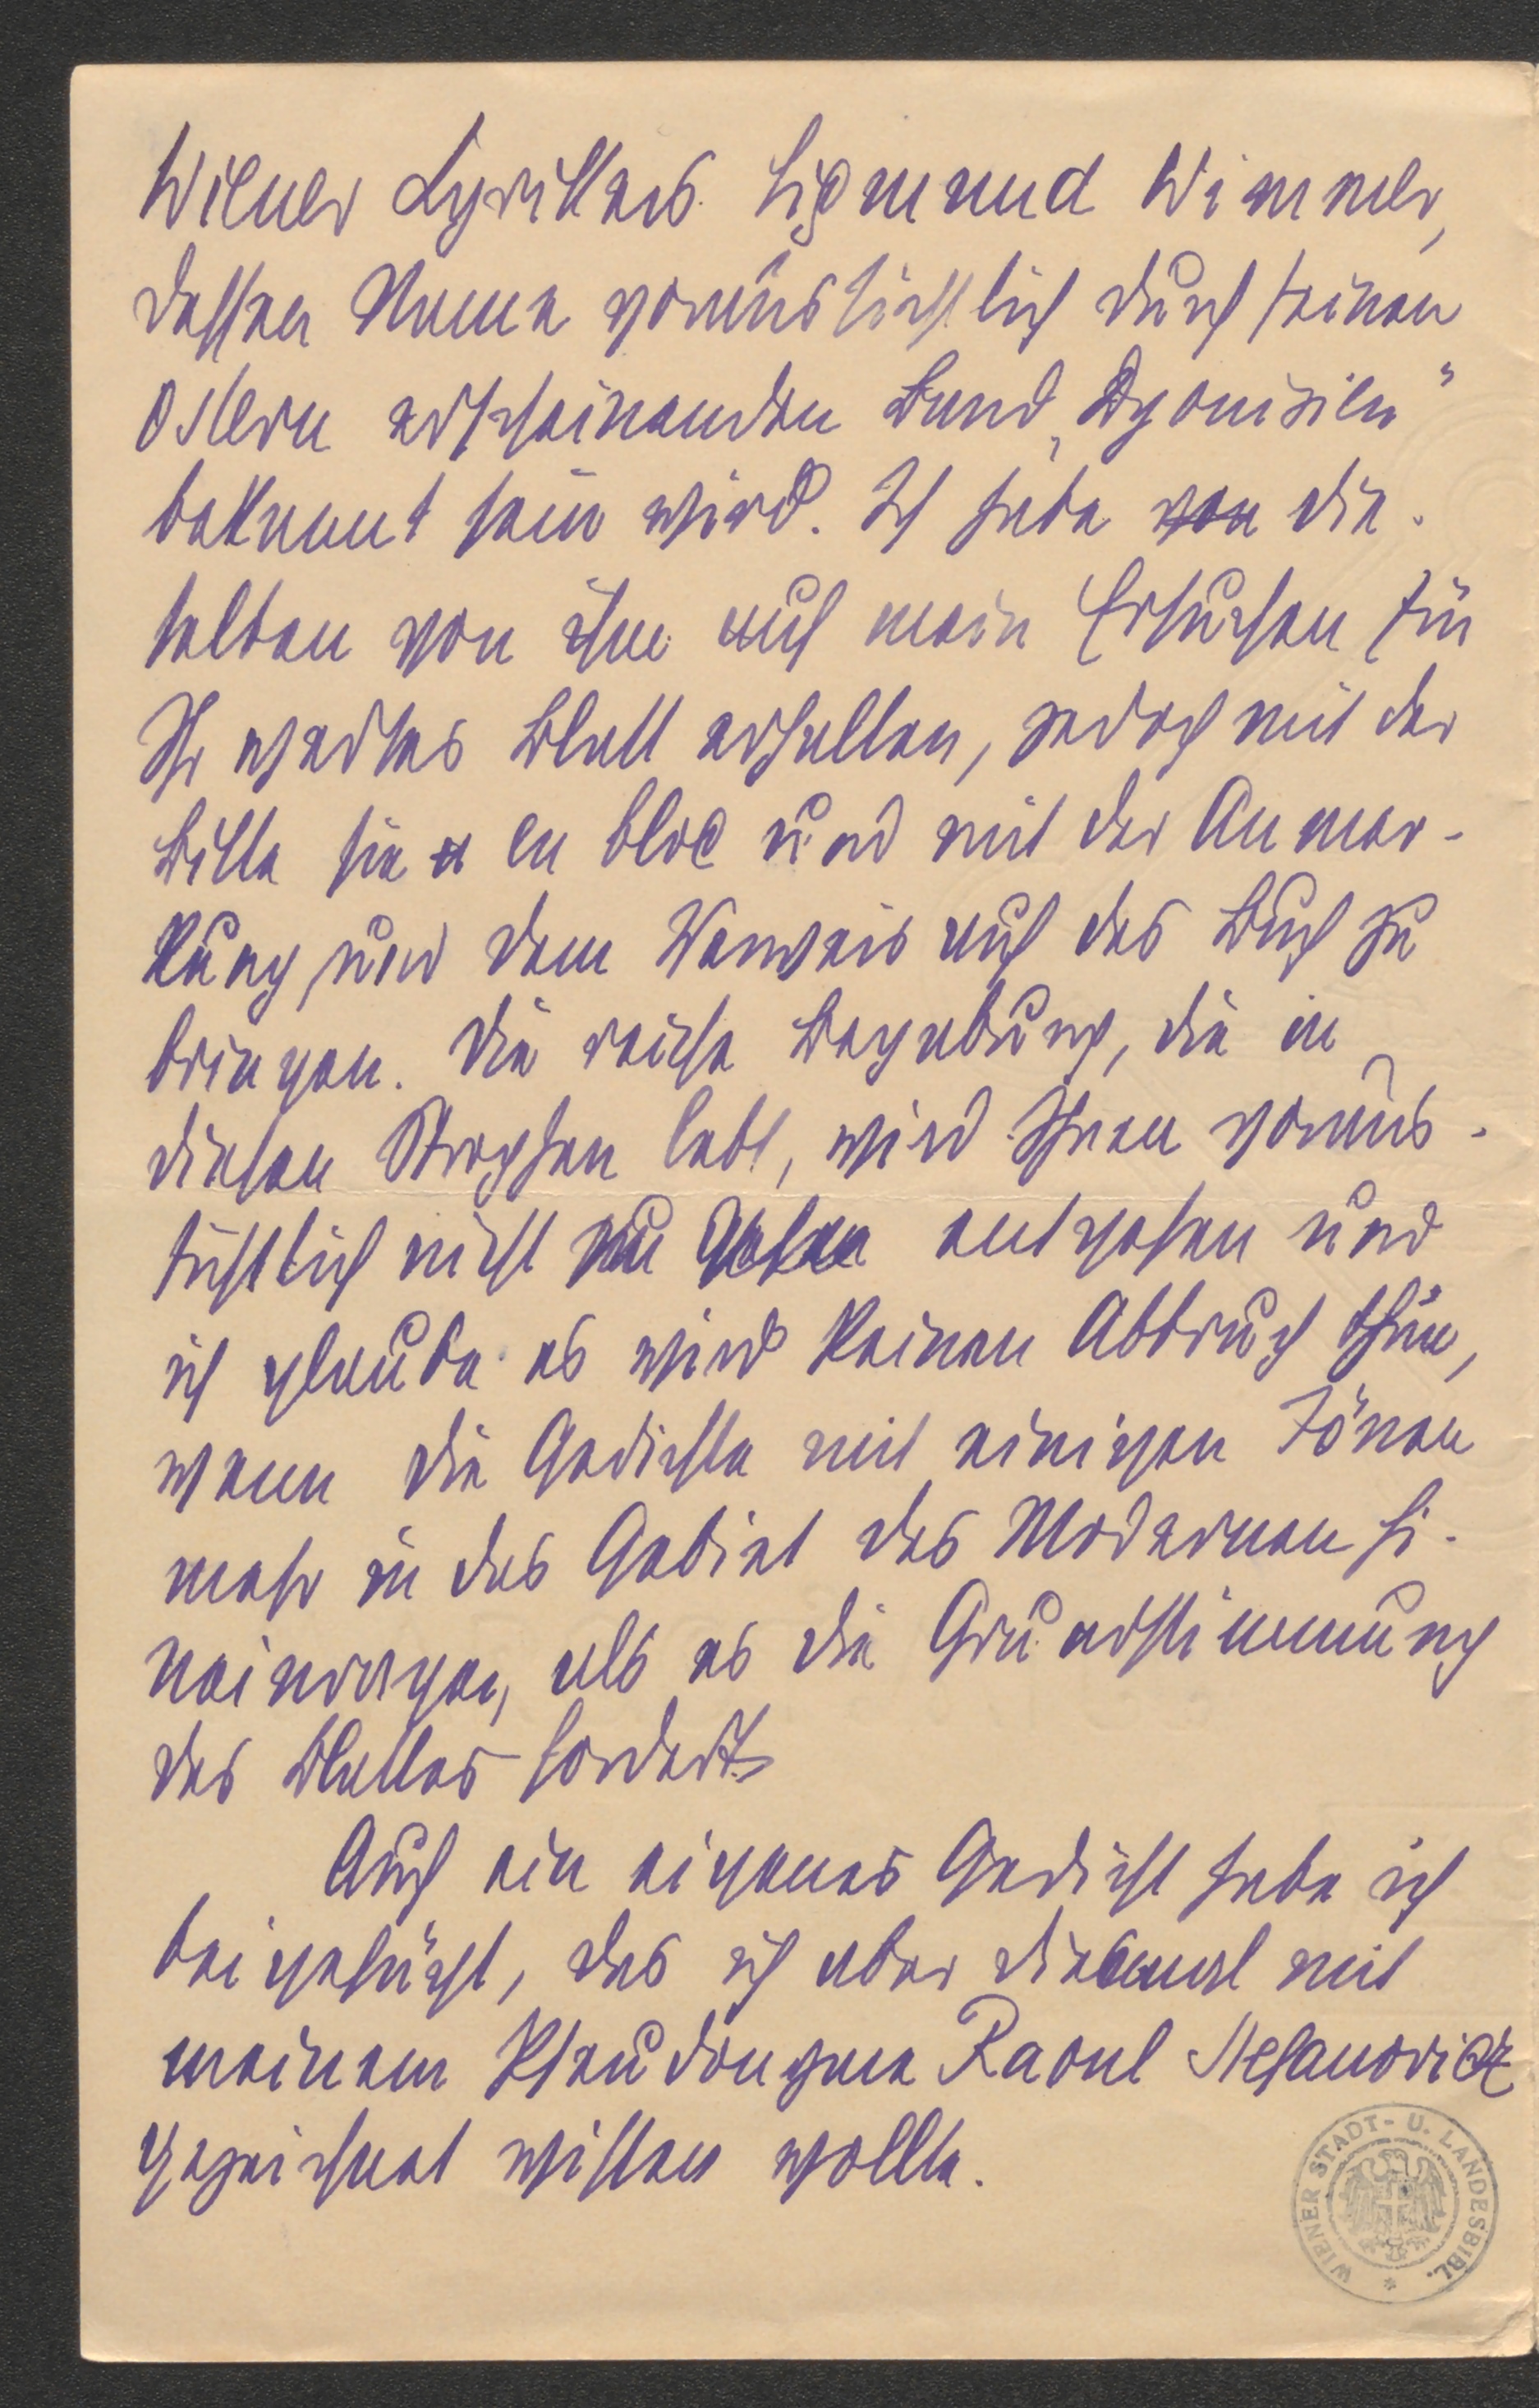 Wiener Lyrikers Sigmund Wimmer,
dessen Name voraussichtlich durch seinen
Ostern erscheinenden Band „Dyonisien"
bekannt sein wird. Ich habe von die-
selben von ihm auf mein Ersuchen für
Ihr wertes Blatt erhalten, jedoch mit der
Bitte sie en bloc und mit der Anmer-
kung und dem Verweis auf das Buch zu
bringen. Die reiche Begabung, die in
diesen Strophen lebt, wird Ihnen voraus-
sichtlich nicht entgehen und
ich glaube es wird keinen Abbruch thun,
wenn die Gedichte mit einigen Tönen
mehr in das Gebiet des Modernen hi-
neinragen, als es die Grundstimmung
des Blattes fordert.
Auch ein eigenes Gedicht habe ich
beigefügt, das ich aber diesmal mit
meinem Pseudonyme Raoul Stefanovicz
gezeichnet wissen wollte.
WIENER STADT- U. LANDESBIBL.